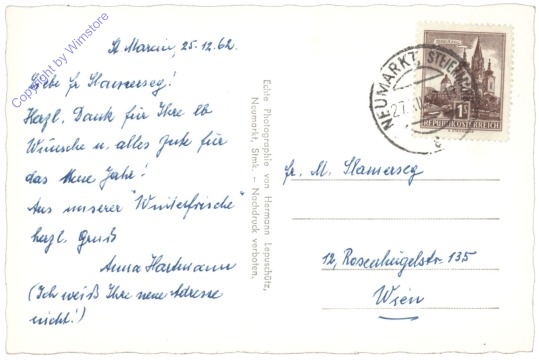 Copyright by Wimstore
St Marein, 25.12.62.
Liebe Fr Slamerseg!
Herzl. Dank für Ihre lb
Wünsche u. alles Gute für
das Neue Jahr!
Aus unserer "Winterfrische"
herzl. Gruß
Anna Hartmann
(Ich weiß Ihre neue Adresse
nicht!)
Echte Photographie von Hermann Lepuschütz,
Neumarkt, Stmk. – Nachdruck verboten.
NEUMARKT
27.
1S
REPUBLIK ÖSTERREICH
Fr. M. Slamerseg
12, Rosenhügelstr. 135
Wien